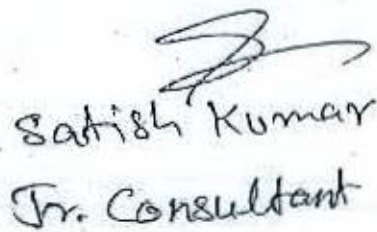 Satish Kumar
Jr. Consultant